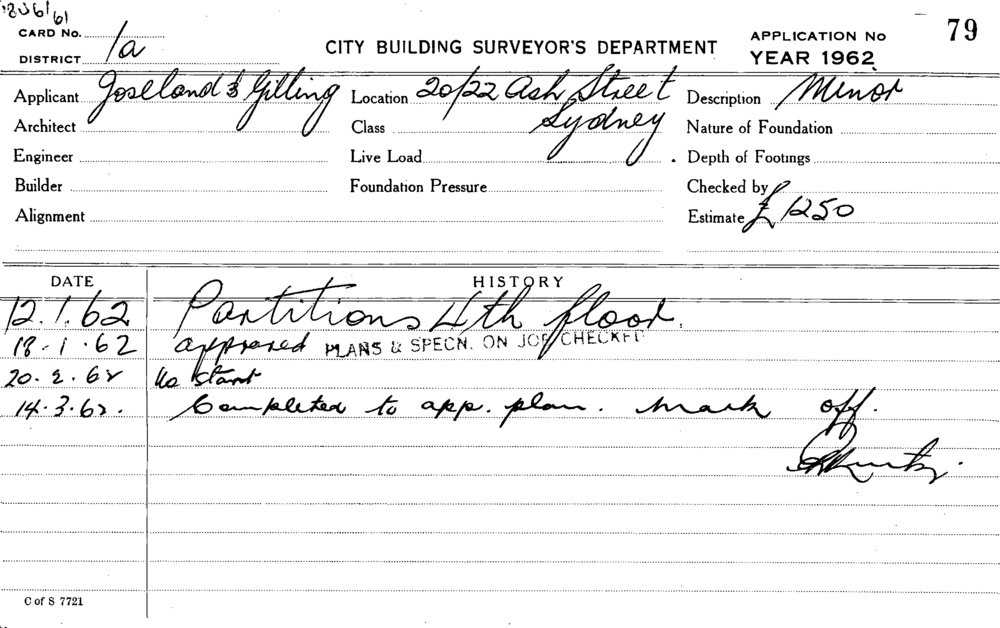 CARD No.
DISTRICT 1a
CITY BUILDING SURVEYOR'S DEPARTMENT
APPLICATION No 79
YEAR 1962
Applicant Joseland & Gilling
Location 20/22 Ash Street
Sydney
Description Minor
Architect
Class
Nature of Foundation
Engineer
Live Load
Depth of Footings
Builder
Foundation Pressure
Checked by
Alignment
Estimate £1250
DATE HISTORY
12.1.62 Partitions 4th floor.
18-1.62 approved PLANS & SPECN. ON JOB CHECKED
20.2.62 No start
14.3.62. Completed to app. plan. Mark off.
C of S 7721